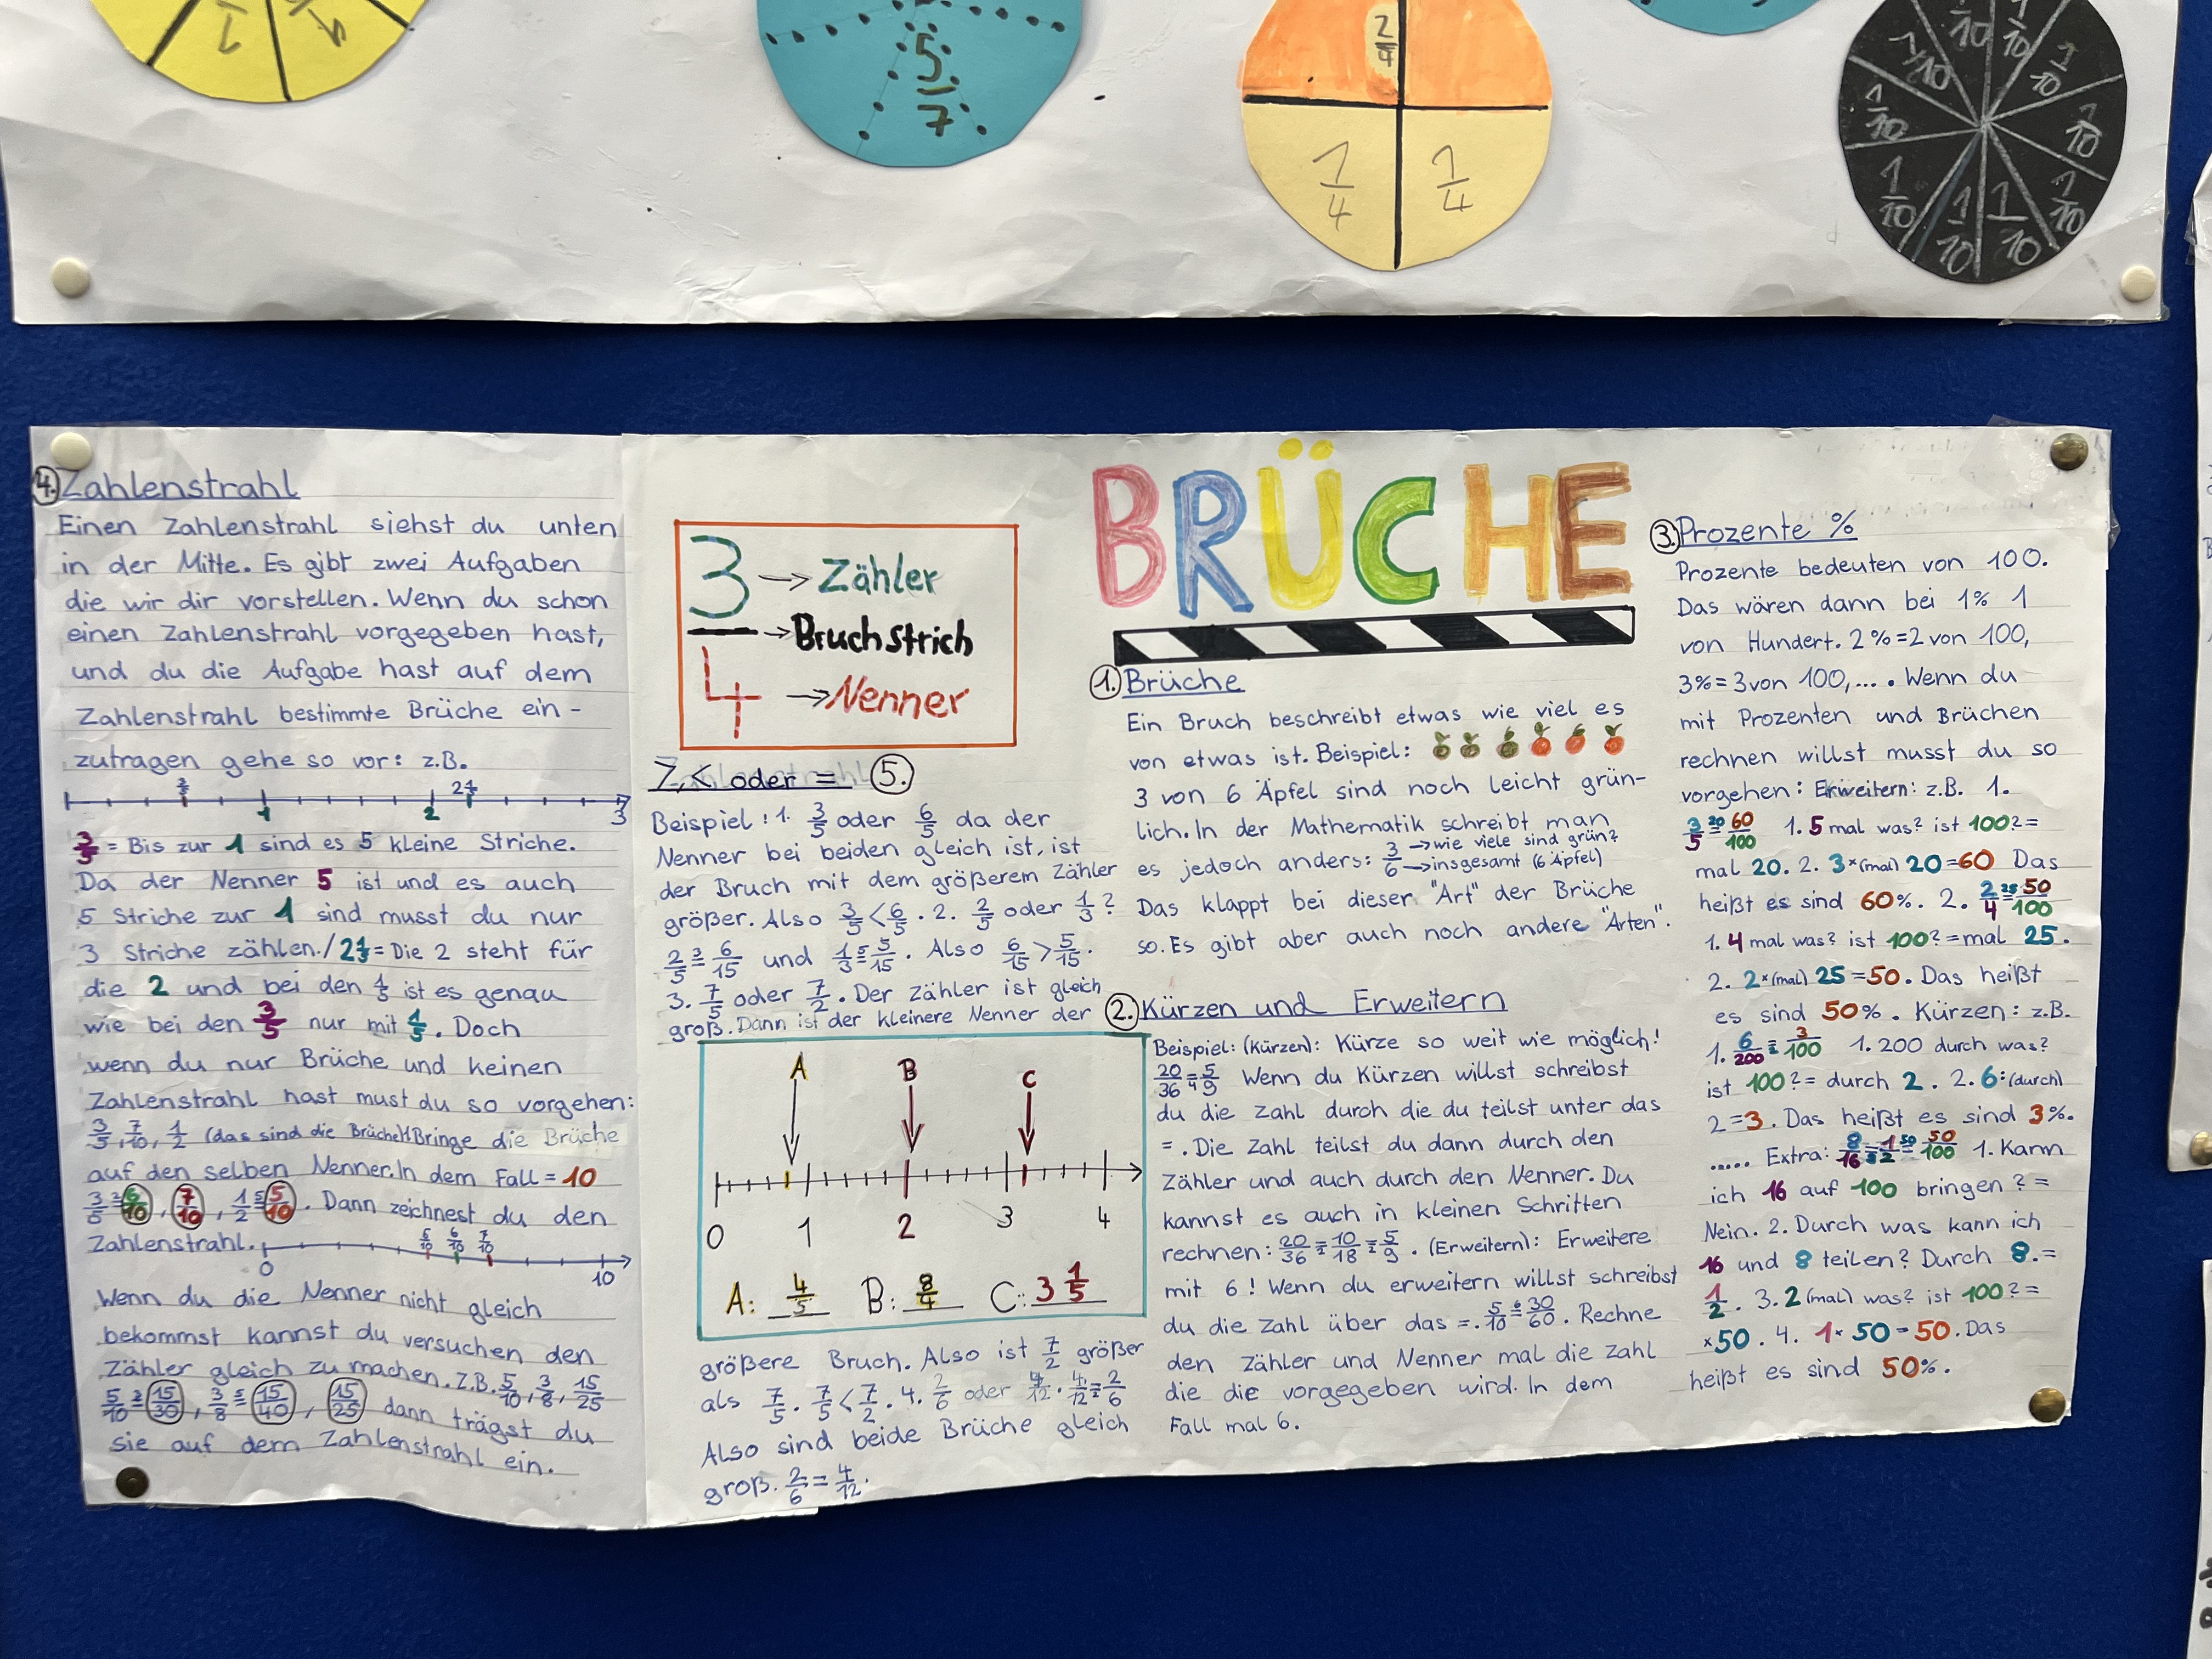 5/7
2/4
1/4 1/4
1/10 1/10 1/10 1/10 1/10 1/10 1/10 1/10 1/10 1/10
BRÜCHE
3 → Zähler
→ Bruchstrich
4 → Nenner
1. Brüche
Ein Bruch beschreibt etwas wie viel es
von etwas ist. Beispiel:
3 von 6 Äpfel sind noch leicht grün-
lich. In der Mathematik schreibt man
es jedoch anders: 3/6 → wie viele sind grün? → insgesamt (6 Äpfel)
Das klappt bei dieser "Art" der Brüche
so. Es gibt aber auch noch andere "Arten".
2. Kürzen und Erweitern
Beispiel: (Kürzen): Kürze so weit wie möglich!
20/36 =4 5/9 Wenn du Kürzen willst schreibst
du die Zahl durch die du teilst unter das
=. Die Zahl teilst du dann durch den
Zähler und auch durch den Nenner. Du
kannst es auch in kleinen Schritten
rechnen: 20/36 =2 10/18 =2 5/9. (Erweitern): Erweitere
mit 6! Wenn du erweitern willst schreibst
du die Zahl über das =. 5/10 =6 30/60. Rechne
den Zähler und Nenner mal die Zahl
die die vorgegeben wird. In dem
Fall mal 6.
3. Prozente %
Prozente bedeuten von 100.
Das wären dann bei 1% 1
von Hundert. 2%=2 von 100,
3%=3 von 100,.... Wenn du
mit Prozenten und Brüchen
rechnen willst musst du so
vorgehen: Erweitern: z.B. 1.
3/5 =20 60/100 1. 5 mal was? ist 100?=
mal 20. 2. 3×(mal) 20=60 Das
heißt es sind 60%. 2. 2/4 =25 50/100
1. 4 mal was? ist 100?=mal 25.
2. 2×(mal) 25=50. Das heißt
es sind 50%. Kürzen: z.B.
1. 6/200 =2 3/100 1. 200 durch was?
ist 100?= durch 2. 2. 6:(durch)
2=3. Das heißt es sind 3%.
..... Extra: 8/16 =8 1/2 =50 50/100 1. Kann
ich 16 auf 100 bringen?=
Nein. 2. Durch was kann ich
16 und 8 teilen? Durch 8.=
1/2. 3. 2 (mal) was? ist 100?=
×50. 4. 1×50=50. Das
heißt es sind 50%.
4. Zahlenstrahl
Einen Zahlenstrahl siehst du unten
in der Mitte. Es gibt zwei Aufgaben
die wir dir vorstellen. Wenn du schon
einen Zahlenstrahl vorgegeben hast,
und du die Aufgabe hast auf dem
Zahlenstrahl bestimmte Brüche ein-
zutragen gehe so vor: z.B.
3/5 1 2 2 1/5 3
3/5 = Bis zur 1 sind es 5 kleine Striche.
Da der Nenner 5 ist und es auch
5 Striche zur 1 sind musst du nur
3 Striche zählen./2 1/5 = Die 2 steht für
die 2 und bei den 1/5 ist es genau
wie bei den 3/5 nur mit 1/5. Doch
wenn du nur Brüche und keinen
Zahlenstrahl hast must du so vorgehen:
3/5, 7/10, 1/2 (das sind die Brüche) Bringe die Brüche
auf den selben Nenner. In dem Fall = 10
3/5 =2 6/10, 7/10, 1/2 =5 5/10. Dann zeichnest du den
Zahlenstrahl. 0 5/10 6/10 7/10 10
Wenn du die Nenner nicht gleich
bekommst kannst du versuchen den
Zähler gleich zu machen. Z.B. 5/10, 3/8, 15/25
5/10 =3 15/30, 3/8 =5 15/40, 15/25 dann trägst du
sie auf dem Zahlenstrahl ein.
>,< oder = 5.
Beispiel: 1. 3/5 oder 6/5 da der
Nenner bei beiden gleich ist, ist
der Bruch mit dem größerem Zähler
größer. Also 3/5 < 6/5. 2. 2/5 oder 1/3?
2/5 =3 6/15 und 1/3 =5 5/15. Also 6/15 > 5/15.
3. 7/5 oder 7/2. Der Zähler ist gleich
groß. Dann ist der kleinere Nenner der
A B C
0 1 2 3 4
A: 4/5 B: 8/4 C: 3 1/5
größere Bruch. Also ist 7/2 größer
als 7/5. 7/5 < 7/2. 4. 2/6 oder 4/12. 4/12 =2 2/6
Also sind beide Brüche gleich
groß. 2/6 = 4/12.